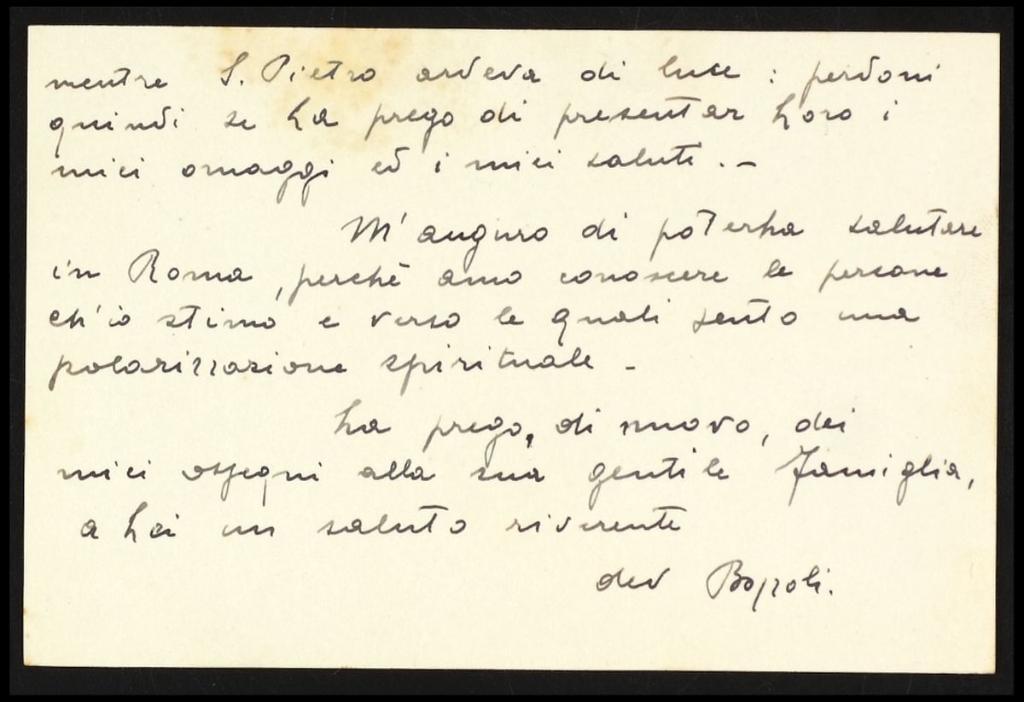 mentre S. Pietro ardeva di luce : perdoni
quindi se La prego di presentar Loro i
miei omaggi ed i miei saluti. -
M'auguro di poterLa salutare
in Roma, perchè amo conoscere le persone
ch'io stimo e verso le quali sento una
polarizzazione spirituale -
La prego, di nuovo, dei
miei ossequi alla sua gentile Famiglia,
a Lei un saluto riverente
dev